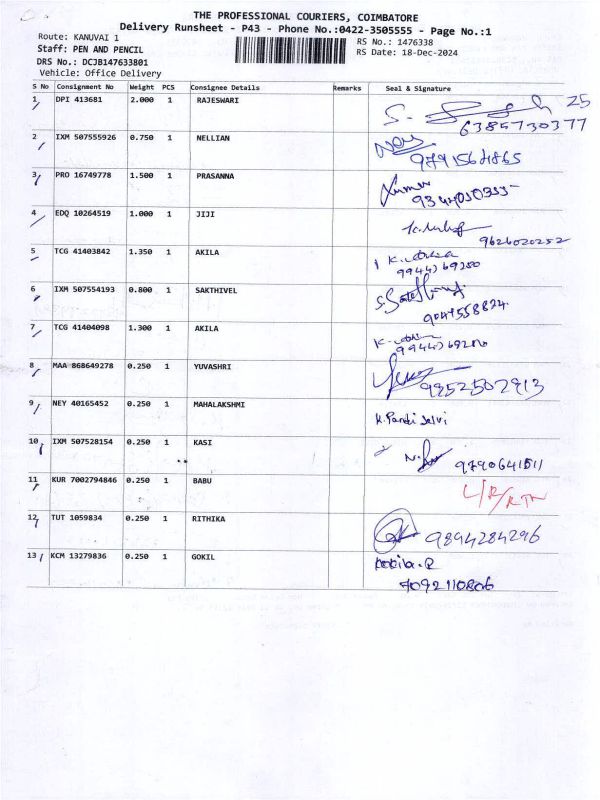 THE PROFESSIONAL COURIERS, COIMBATORE
Delivery Runsheet - P43 - Phone No.:0422-3505555 - Page No.:1
Route: KANUVAI 1
RS No.: 1476338
Staff: PEN AND PENCIL
RS Date: 18-Dec-2024
DRS No.: DCJB147633801
Vehicle: Office Delivery
S No Consignment No Weight PCS Consignee Details Remarks Seal & Signature
1 DPI 413681 2.000 1 RAJESWARI 25
6385730377
2 IXM 507555926 0.750 1 NELLIAN
9791564865
3 PRO 16749778 1.500 1 PRASANNA
4 EDQ 10264519 1.000 1 JIJI
9626020252
5 TCG 41403842 1.350 1 AKILA
6 IXM 507554193 0.800 1 SAKTHIVEL
7 TCG 41404098 1.300 1 AKILA
8 MAA 868649278 0.250 1 YUVASHRI
9852502913
9 NEY 40165452 0.250 1 MAHALAKSHMI
K. Pandi Selvi
10 IXM 507528154 0.250 1 KASI
9790641511
11 KUR 7002794846 0.250 1 BABU
12 TUT 1059834 0.250 1 RITHIKA
9894284296
13 KCM 13279836 0.250 1 GOKIL Kokila.R
7092110806